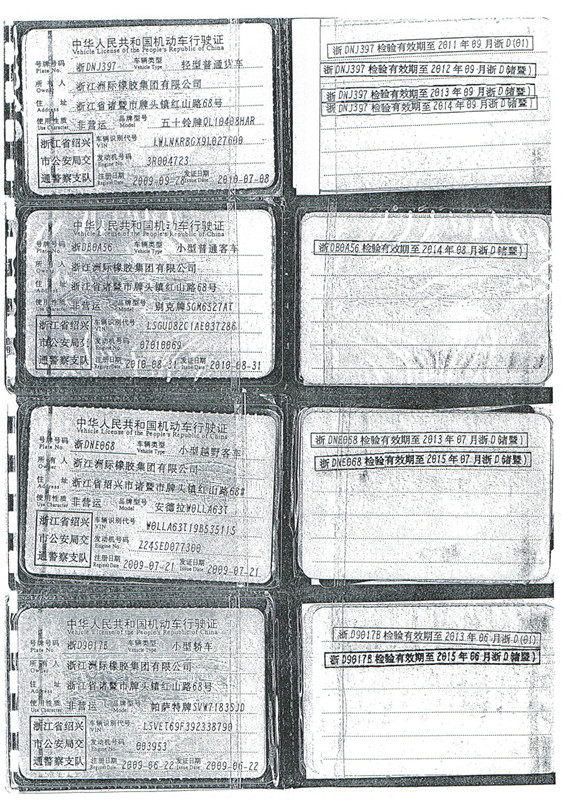 中华人民共和国机动车行驶证
Vehicle License of the People's Republic of China
号牌号码 Plate No. 浙DNJ397 车辆类型 Vehicle Type 轻型普通货车
所有人 Owner 浙江洲际橡胶集团有限公司
住址 Address 浙江省诸暨市牌头镇红山路68号
使用性质 Use Character 非营运 品牌型号 Model 五十铃牌QL10408HAR
浙江省绍兴 车辆识别代号 VIN LWLNKRBGX9L027600
市公安局交 发动机号码 Engine No. 3R004723
通警察支队 注册日期 Register Date 2009-09-28 发证日期 Issue Date 2010-07-08
浙DNJ397 检验有效期至 2011 年 09 月浙 D(01)
浙DNJ397 检验有效期至 2012 年 09 月浙 D(诸暨)
浙DNJ397 检验有效期至 2013 年 09 月浙 D(诸暨)
浙DNJ397 检验有效期至 2014 年 09 月浙 D(诸暨)
中华人民共和国机动车行驶证
Vehicle License of the People's Republic of China
号牌号码 Plate No. 浙DB0A56 车辆类型 Vehicle Type 小型普通客车
所有人 Owner 浙江洲际橡胶集团有限公司
住址 Address 浙江省诸暨市牌头镇红山路68号
使用性质 Use Character 非营运 品牌型号 Model 别克牌SGM6527AT
浙江省绍兴 车辆识别代号 VIN
市公安局交 发动机号码 Engine No.
通警察支队 注册日期 Register Date 2010-08-31 发证日期 Issue Date 2010-08-31
浙DB0A56 检验有效期至 2014 年 08 月浙 D(诸暨)
中华人民共和国机动车行驶证
Vehicle License of the People's Republic of China
号牌号码 Plate No. 浙DNE068 车辆类型 Vehicle Type 小型越野客车
所有人 Owner 浙江洲际橡胶集团有限公司
住址 Address 浙江省绍兴市诸暨市牌头镇红山路68#
使用性质 Use Character 非营运 品牌型号 Model 安德拉W0LLA63T
浙江省绍兴 车辆识别代号 VIN W0LLA63T19B535115
市公安局交 发动机号码 Engine No. Z24SED077300
通警察支队 注册日期 Register Date 2009-07-21 发证日期 Issue Date 2009-07-21
浙DNE068 检验有效期至 2013 年 07 月浙 D(诸暨)
浙DNE068 检验有效期至 2015 年 07 月浙 D(诸暨)
中华人民共和国机动车行驶证
Vehicle License of the People's Republic of China
号牌号码 Plate No. 浙D9017B 车辆类型 Vehicle Type 小型轿车
所有人 Owner 浙江洲际橡胶集团有限公司
住址 Address 浙江省诸暨市牌头镇红山路68号
使用性质 Use Character 非营运 品牌型号 Model 帕萨特牌SVW7183SJD
浙江省绍兴 车辆识别代号 VIN LSVET69F392338790
市公安局交 发动机号码 Engine No. 003953
通警察支队 注册日期 Register Date 2009-06-22 发证日期 Issue Date 2009-06-22
浙D9017B 检验有效期至 2013 年 06 月浙 D(01)
浙D9017B 检验有效期至 2015 年 06 月浙 D(诸暨)